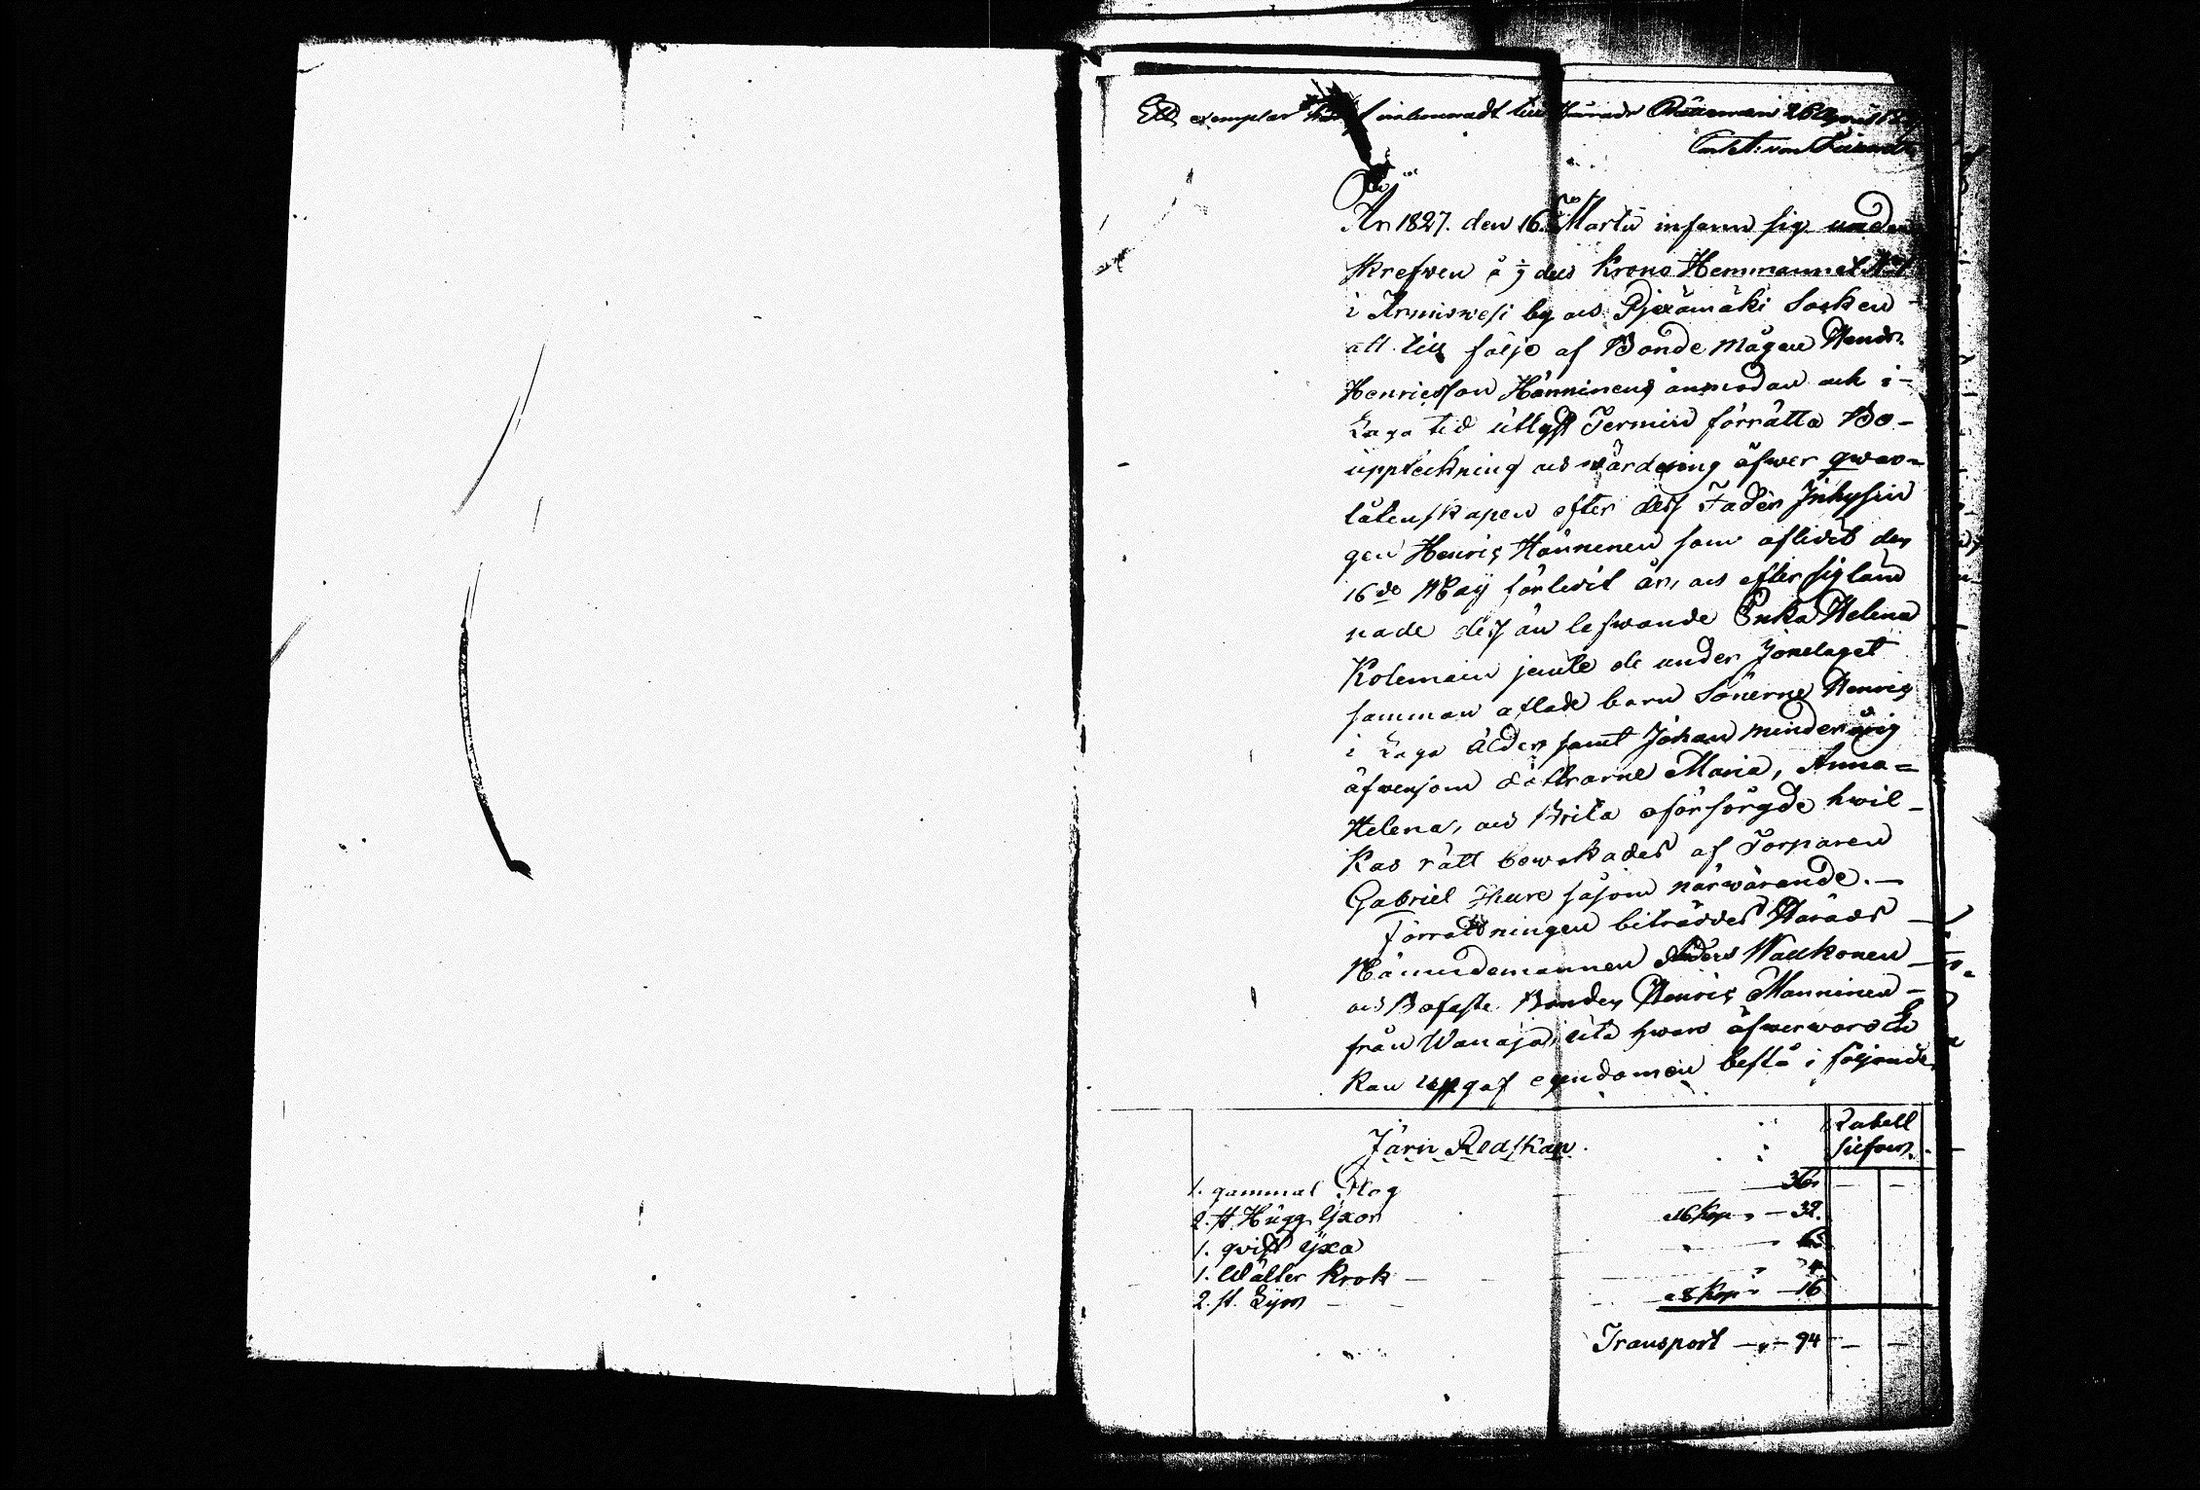 Ett exemplar inlemnadt till Härads
År 1827. den 16 Martii infann sig under
skrefwen å ½ dels Krono Hemmannet N:o 1
i Armiswesi by och Pjexämäki Socken
att till följe af Bonde Mågen Hendr.
Henricsson Hänninens anmodan och i
Laga tid utlyst Termin förrätta Bo-
uppteckning och wärdering öfwer qwar-
låtenskapen efter dess Fader Inhysin
gen Henric Hänninen som aflidit den
16de Maij förledit år, och efter sig läm
nade dess än lefwande Enka Helena
Kolemain jemte de under Ionelaget
samman aflade barn Sönerne Henric
i Laga Ålder samt Johan minderårig
äfwensom döttrarne Maria, Anna=
Helena, och Brita oförsörgde hwil-
kas rätt bewakades af Torparen
Gabriel Ihure såsom närwarande. —
Förrättningen biträddes Härads
Nämndemannen Anders Walkonen
och Bofaste Bonden Henric Manninen
från Wanaja, uti hwars öfwerwaro En
kan uppgaf egendomen bestå i följande
Järn Redskap. Rubell Silfwer.
1. gammal Plog — 36
2. st. Hugg Yxor a 16 Kop — 32.
1. qwist Yxa — 6
1. Wälter Krok — 4
2. st. Lyor a 8 Kop — 16
Transport — 94